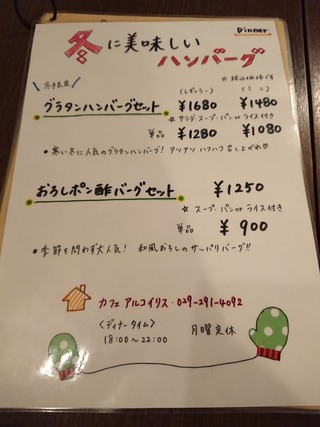 Dinner
冬に美味しい
ハンバーグ
※ 税込価格です
冬季限定
(レギュラー) (ミニ)
グラタンハンバーグセット ¥1680 ¥1480
☆ サラダ・スープ・パンorライス付き
単品 ¥1280 ¥1080
● 寒い冬に人気のグラタンハンバーグ! アツアツ ハフハフ 召し上がれ♡
おろしポン酢バーグセット ¥1250
☆ スープ・パンorライス付き
単品 ¥900
● 季節を問わず大人気! 和風おろしのサッパリバーグ!!
カフェ アルコイリス・029-291-4092
<ディナータイム> 月曜定休
18:00～22:00